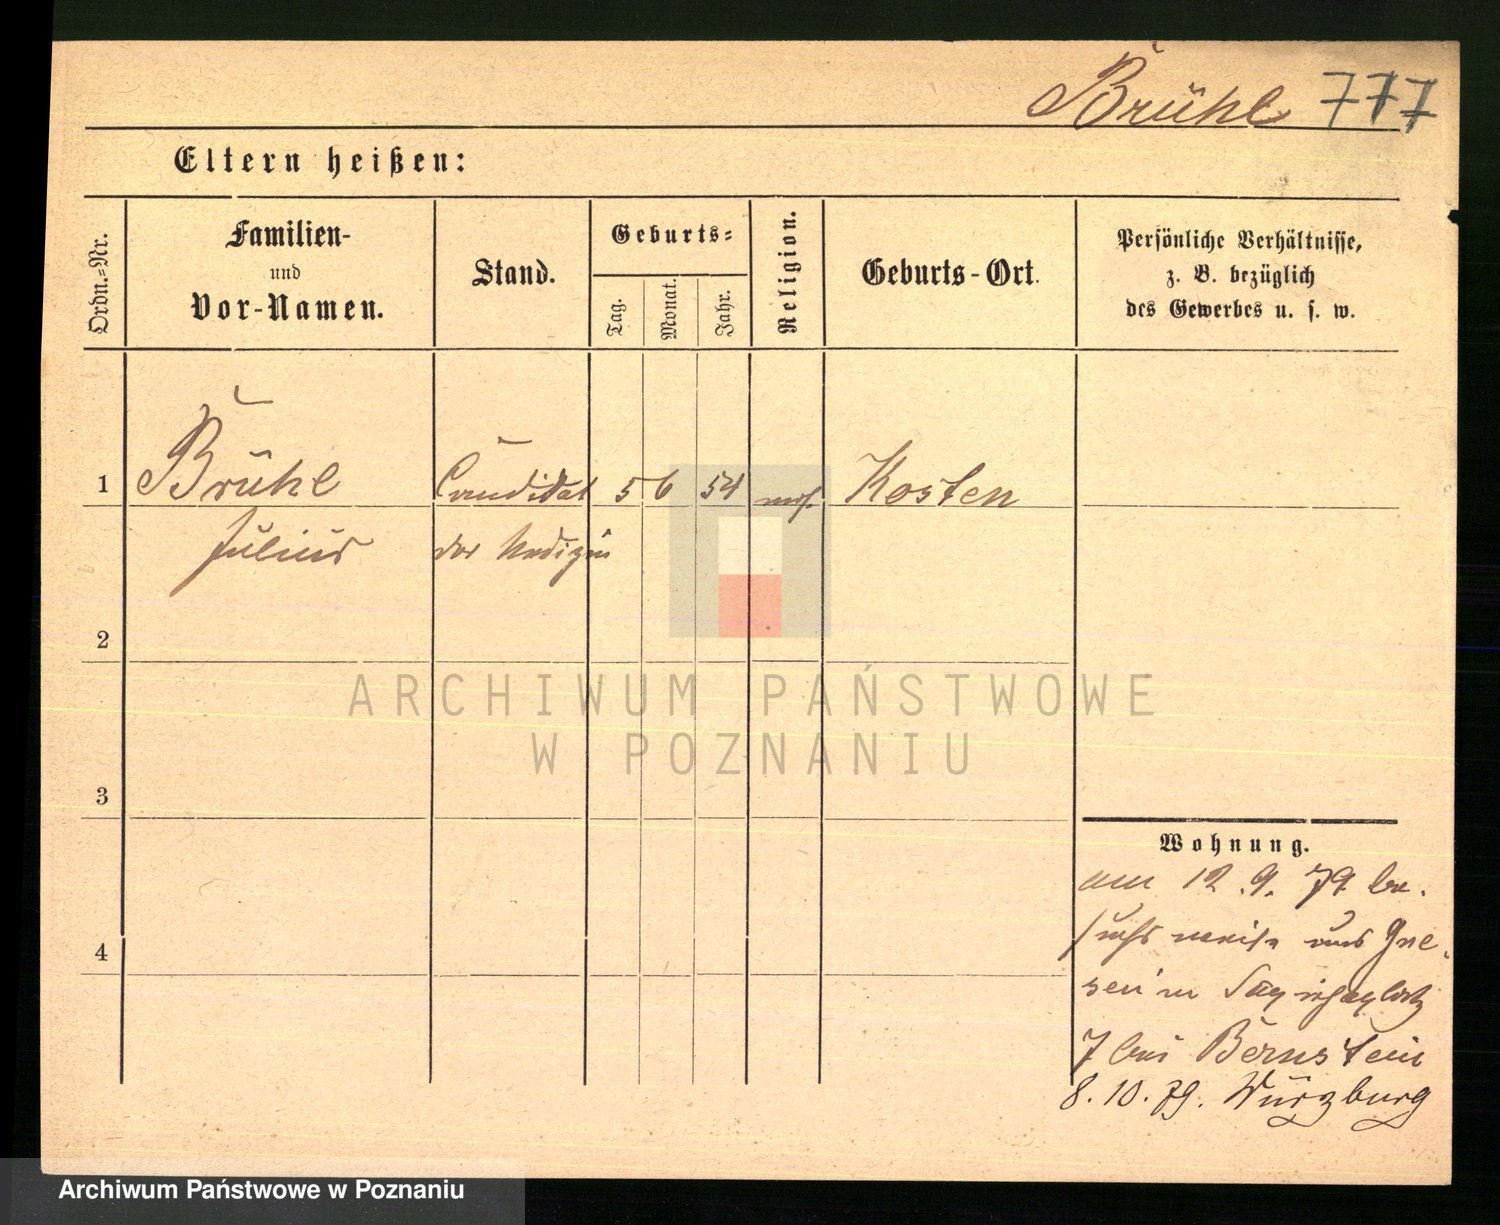 Brühl 777
Eltern heißen:
Ordn.-Nr.
Familien-
und
Vor-Namen.
Stand.
Geburts-
Tag.
Monat.
Jahr.
Religion.
Geburts-Ort.
Persönliche Verhältnisse,
z. B. bezüglich
des Gewerbes u. s. w.
1 Brühl Candidat 5 6 54 mos. Kosten
Julius der Medizin
2
ARCHIWUM PAŃSTWOWE
W POZNANIU
3
Wohnung.
am 12.9.79 be-
suchsweise aus Gne-
sen
4
7 bei Bernstein
8.10.79. Würzburg
Archiwum Państwowe w Poznaniu